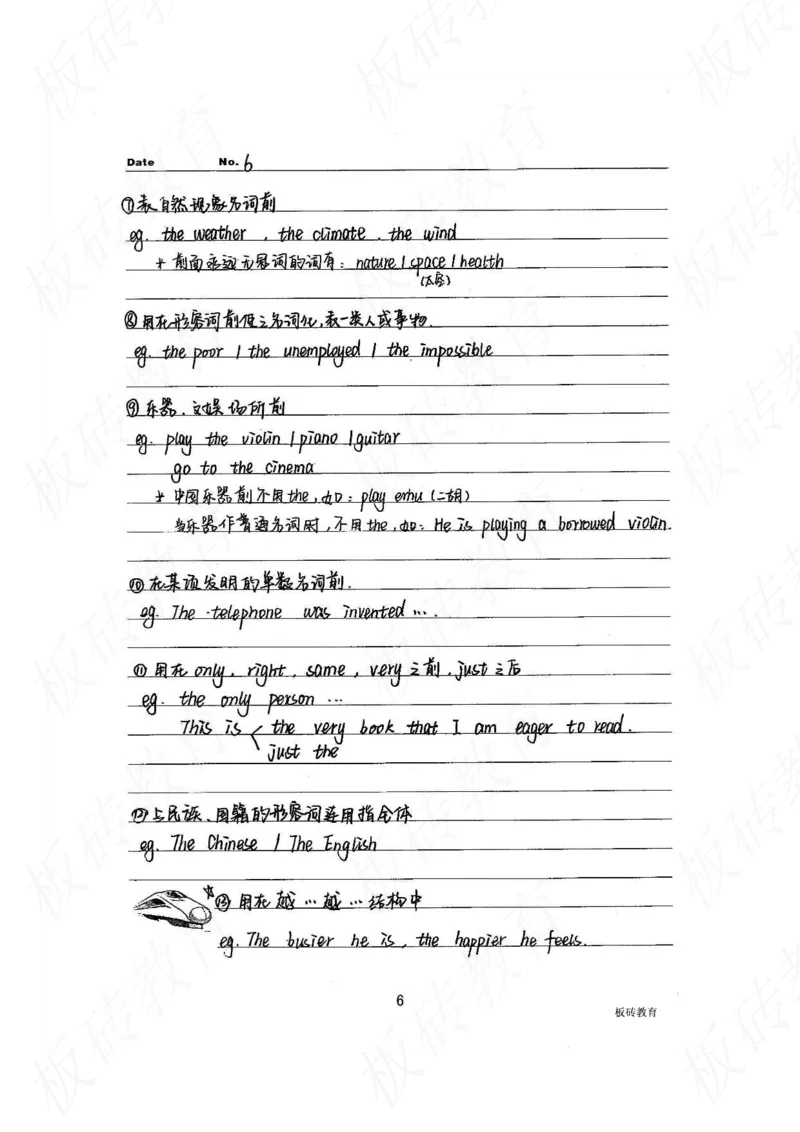 Date No. 6
⑦表自然现象名词前
eg. the weather , the climate , the wind
* 前面永远无冠词的词有: nature / space / health
(太空)
⑧用在形容词前使之名词化,表一类人或事物.
eg. the poor / the unemployed / the impossible
⑨乐器、文娱场所前
eg. play the violin / piano / guitar
go to the cinema
* 中国乐器前不用the,如: play erhu (二胡)
当乐器作普通名词时,不用the,如: He is playing a borrowed violin.
⑩在某项发明的单数名词前.
eg. The telephone was invented ... .
⑪用在 only, right, same, very之前, just之后
eg. the only person ...
This is the very book that I am eager to read.
just the
⑫与民族、国籍的形容词连用指全体
eg. The Chinese / The English
☆⑬用在越...越...结构中
eg. The busier he is, the happier he feels.
6
板砖教育